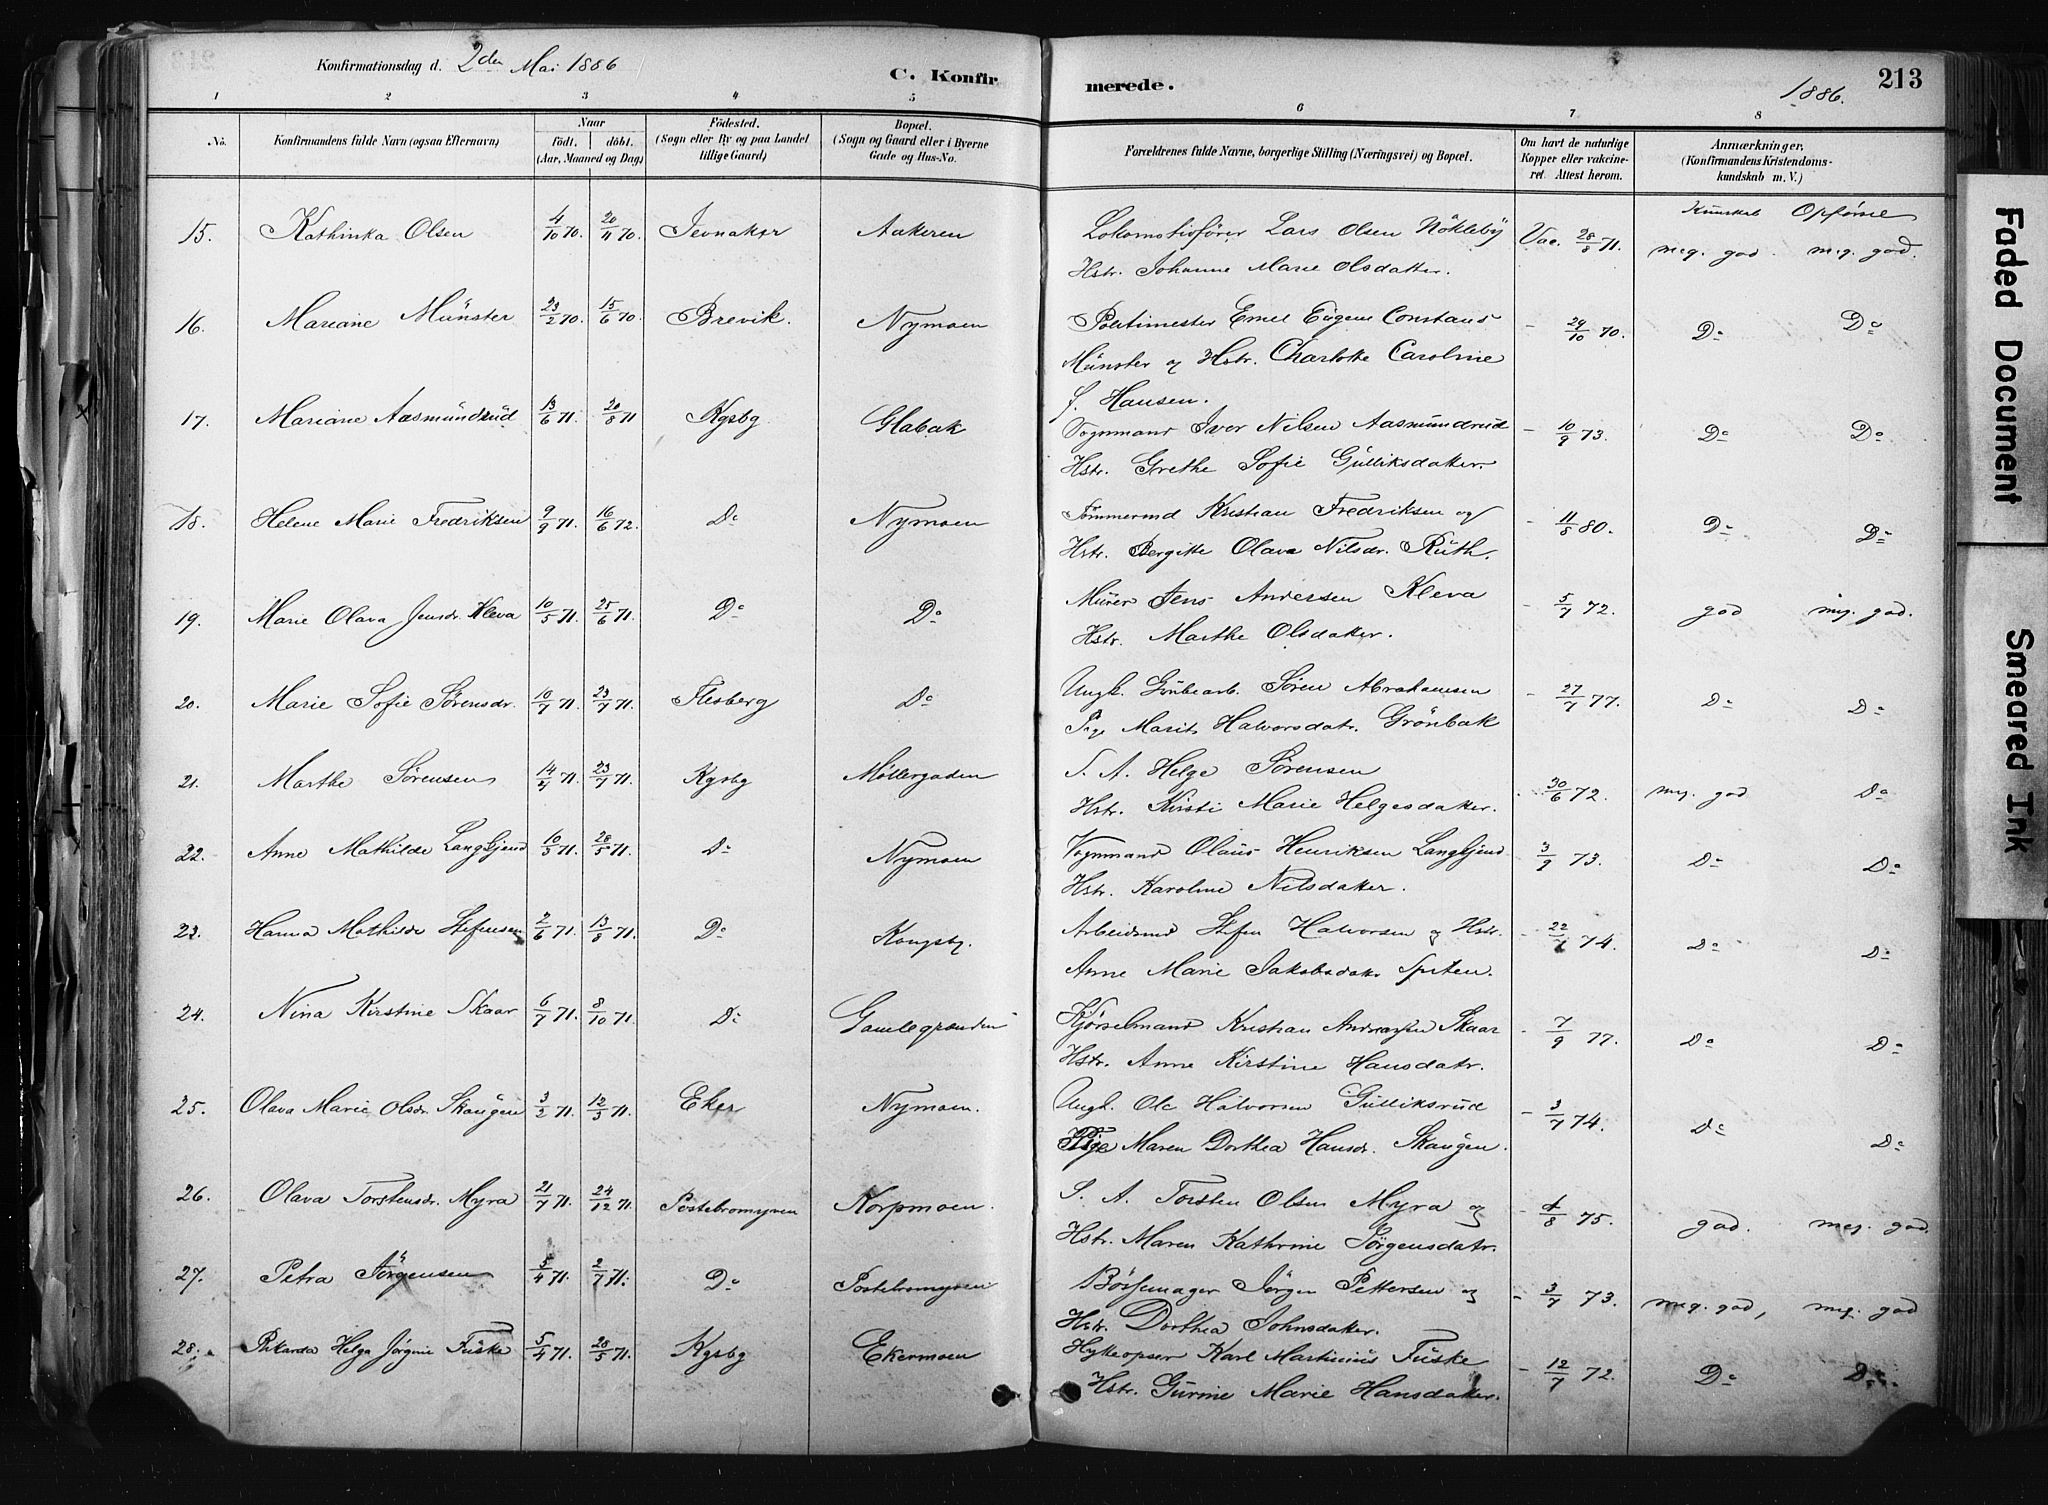 Konfirmationsdag d. 2den Mai 1886
C. Konfirmerede.
1886.
213
1 2 3 4 5 6 7 8
No.
Konfirmandens fulde Navn (ogsaa Efternavn)
Naar
født. døbt.
(Aar, Maaned og Dag)
Fødested.
(Sogn eller By og paa Landet tillige Gaard)
Bopæl.
(Sogn og Gaard eller i Byerne Gade og Hus-No.
Forældrenes fulde Navne, borgerlige Stilling (Næringsvei) og Bopæl.
Om havt de naturlige Kopper eller vakcineret. Attest herom.
Anmærkninger.
(Konfirmandens Kristendomskundskab m. V.)
Kundskab Opførsel
15. Kathinka Olsen 4/10 70. 20/4 70. Jevnaker Aakeren Lokomotivfører Lars Olsen Nökleby Vac. 28/8 71. meg. god. meg. god.
Hstr. Johanne Marie Olsdatter.
16. Mariane Münster 23/2 70. 15/6 70. Brevik. Nymoen Politimester Emel Eugene Constans - 29/10 70. Do Do
Münster og Hstr. Charlotte Caroline
f. Hansen.
17. Mariane Aasmundrud 13/6 71. 20/8 71 Kgsbg Glabak Vognmand Iver Nilsen Aasmundrud - 10/9 73. Do Do
Hstr. Grethe Sofie Gulliksdatter.
18. Helene Marie Fredriksen 9/9 71. 16/6 72. Do Nymoen Tømmermd Kristian Fredriksen og - 11/8 80. Do Do
Hstr. Bergitte Olava Nilsdr. Ruth.
19. Marie Olava Jensdr. Kleva 10/5 71. 25/6 71. Do Do Murer Jens Andersen Kleva - 5/7 72. god meg. god.
Hstr. Marthe Olsdatter.
20. Marie Sofie Sørensdr. 10/7 71. 23/7 71. Flesberg Do Ungk. Grubearb. Søren Abrahamsen - 27/7 77. Do Do
Pige Marit Halvorsdatr. Grönbak
21. Marthe Sørensen 14/4 71. 23/7 71. Kgsbg Møllergaden S. A. Helge Sørensen - 30/6 72. meg. god Do
Hstr. Kirsti Marie Helgesdatter.
22. Anne Mathilde Langkjend 10/3 71. 28/5 71. Do Nymoen Vognmand Olaus Henriksen Langkjend 3/9 73. Do Do
Hstr. Karoline Nilsdatter.
23. Hanna Mathilde Stefensen 2/6 71. 13/8 71. Do Kongsbg. Arbeidsmd Stefen Halvorsen og Hstr. - 22/7 74. Do Do
Anne Marie Jakobsdatr Spiten.
24. Nina Kirstine Skaar 6/7 71. 8/10 71. Do Gamlegrenden Kjørselmand Kristian Andreassen Skaar - 7/9 77. Do Do
Hstr. Anne Kirstine Hansdatr.
25. Olava Marie Olsdr. Skaugen 3/2 71. 12/3 71. Eker Nymoen. Ungk. Ole Halvorsen Gulliksrud - 3/7 74. Do Do
Pige Maren Dorthea Hansdr. Skaugen.
26. Olava Torstensdr. Myra 21/7 71. 24/12 71. Postebromyren Korpmoen. S. A. Torsten Olsen Myra og - 4/8 75. god. meg. god.
Hstr. Maren Kathrine Jørgensdatr.
27. Petra Jørgensen 5/4 71. 2/7 71. Do Postebromyren Bøssemager Jørgen Pettersen og - 3/7 73. meg. god, meg. god
Hstr. Dorthea Johnsdatter.
28. Rikarda Helga Jørgine Fuske 5/4 71. 28/5 71. Kgsbg Ekermoen Hytteopser Karl Martinius Fuske - 12/7 72. Do Do
Hstr. Gurine Marie Hansdatter.
Faded Document
Smeared Ink